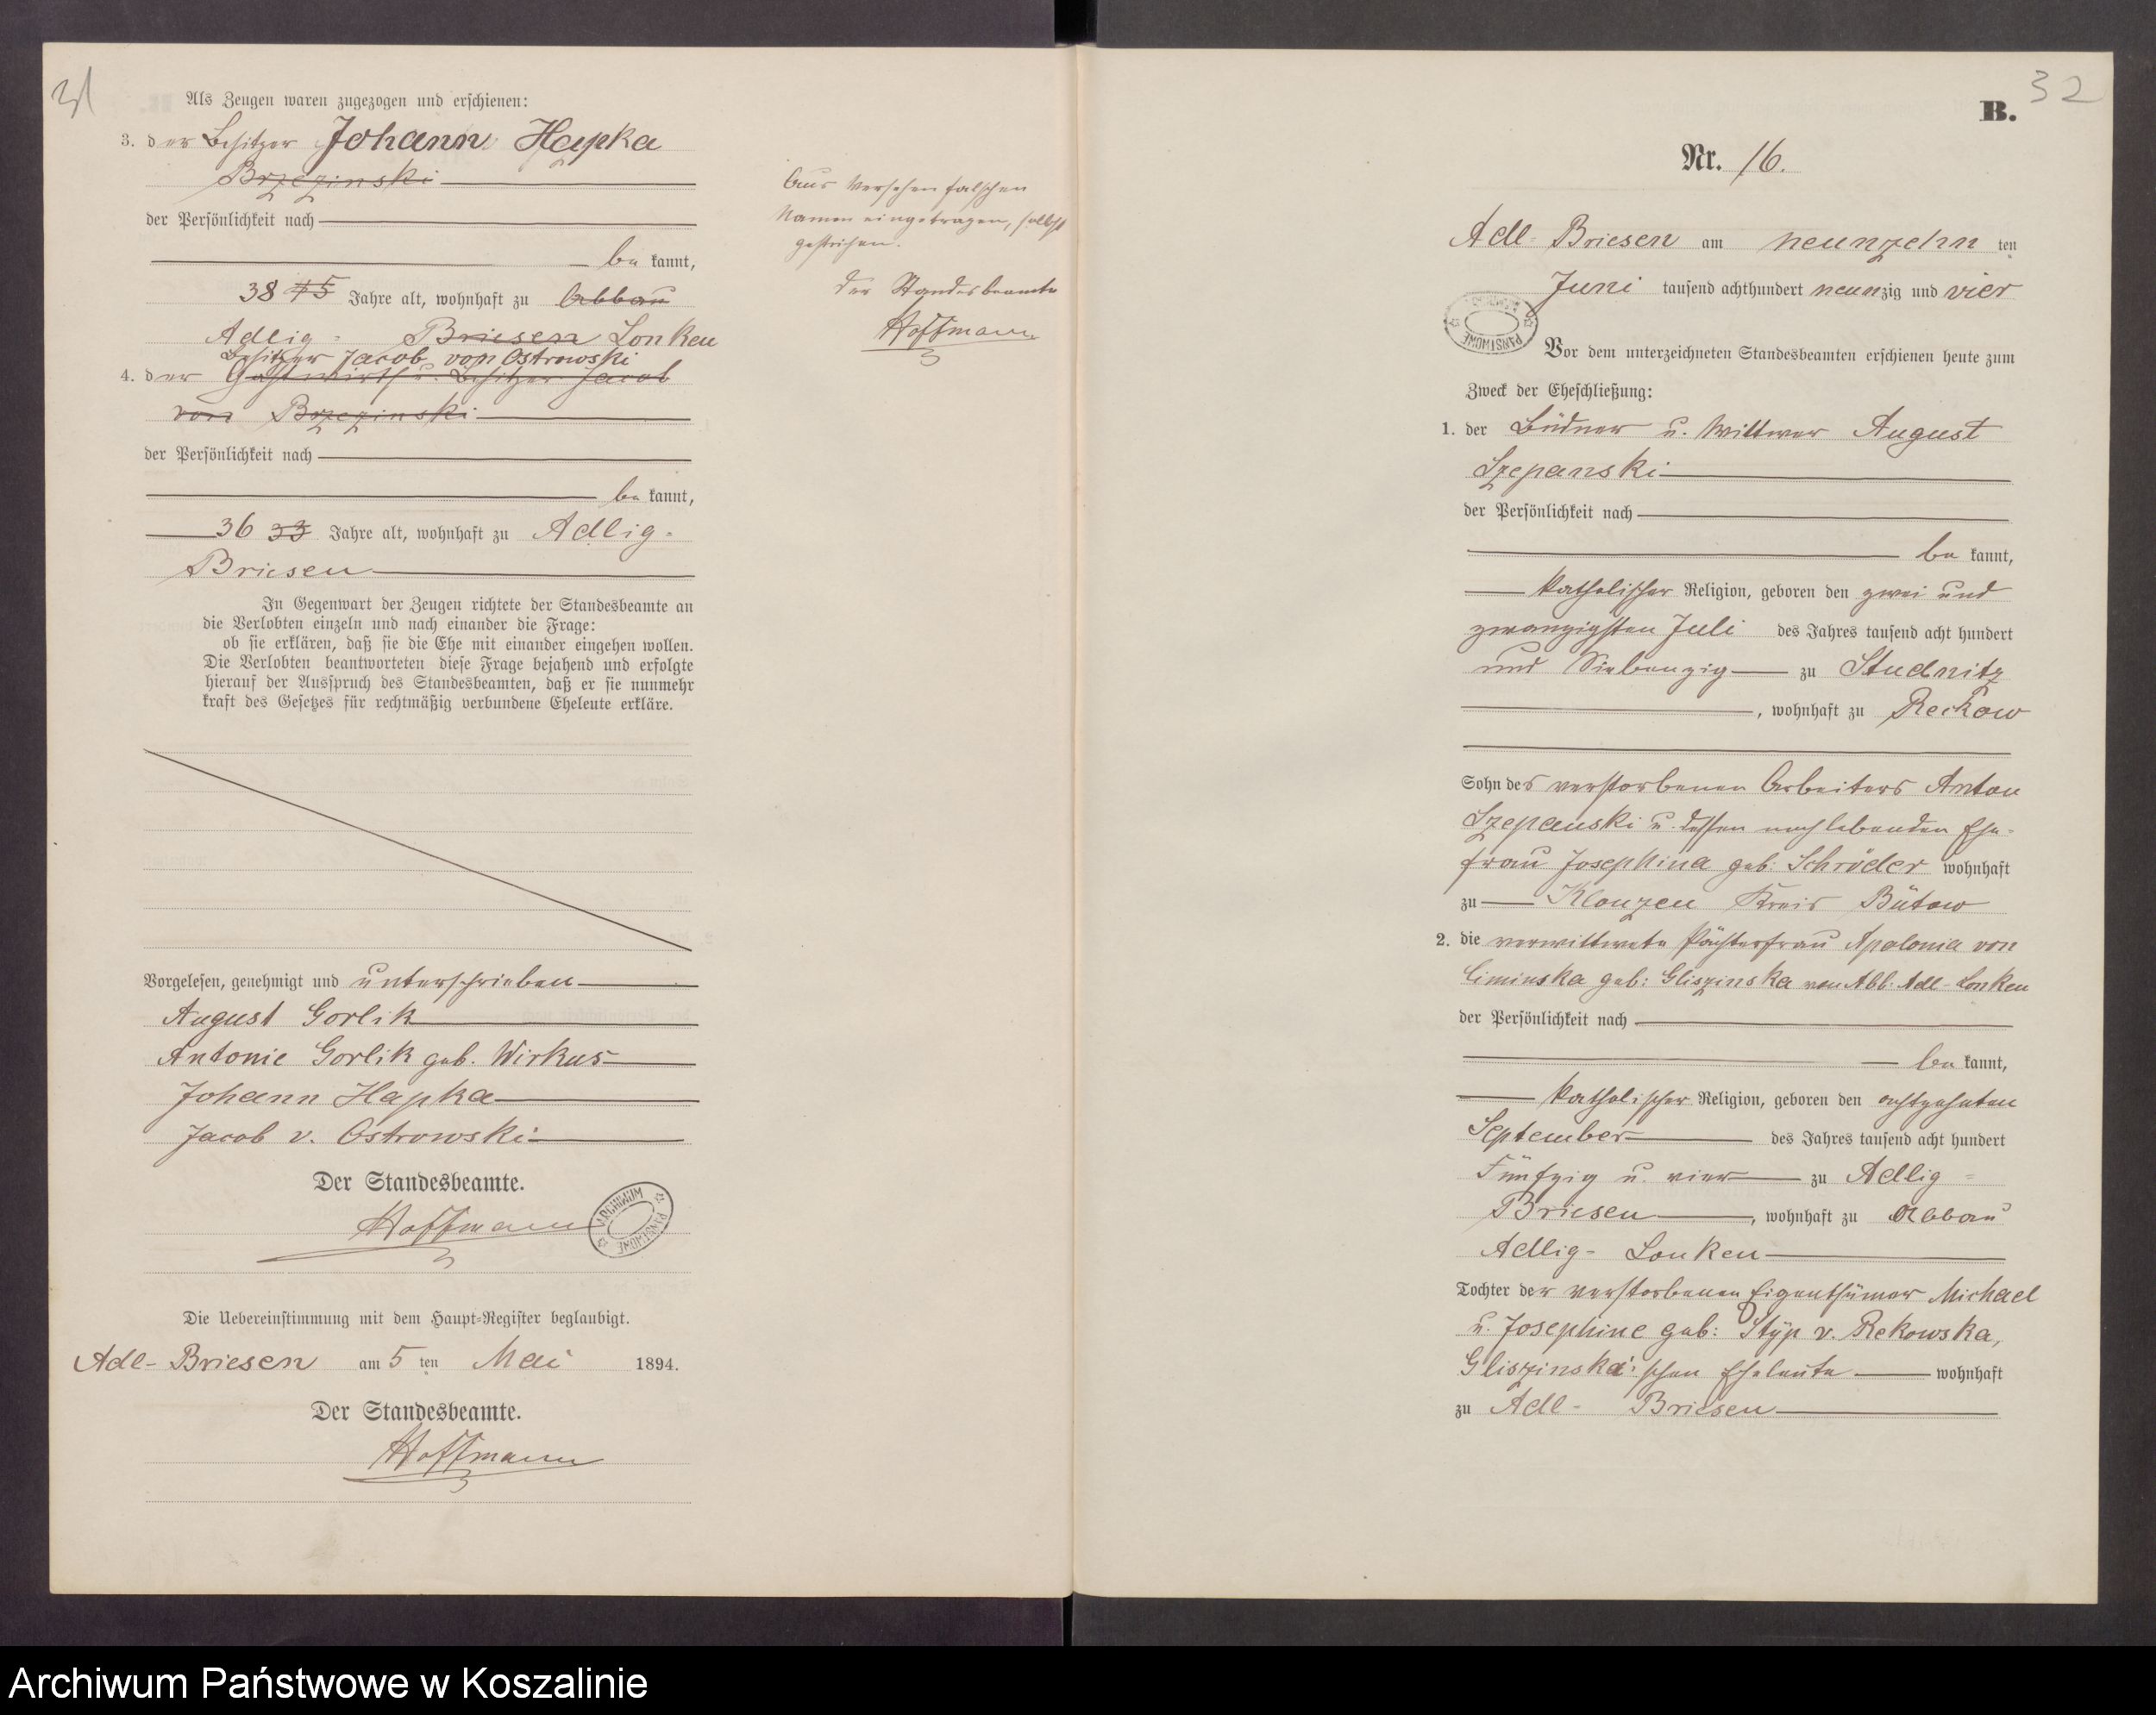 31
Als Zeugen waren zugezogen und erschienen:
3. der Besitzer Johann Hapka
Brzezinski
der Persönlichkeit nach
be kannt,
38 45 Jahre alt, wohnhaft zu Abbau
Adlig- Briesen Lonken
Besitzer Jacob von Ostrowski
4. der Gastwirth u. Besitzer Jacob
von Brzezinski
der Persönlichkeit nach
be kannt,
36 33 Jahre alt, wohnhaft zu Adlig-
Briesen
In Gegenwart der Zeugen richtete der Standesbeamte an
die Verlobten einzeln und nach einander die Frage:
ob sie erklären, daß sie die Ehe mit einander eingehen wollen.
Die Verlobten beantworteten diese Frage bejahend und erfolgte
hierauf der Ausspruch des Standesbeamten, daß er sie nunmehr
kraft des Gesetzes für rechtmäßig verbundene Eheleute erkläre.
Vorgelesen, genehmigt und unterschrieben
August Gorlik
Antonie Gorlik geb. Wirkus
Johann Hapka
Jacob v. Ostrowski
Der Standesbeamte.
Hoffmann
ARCHIWUM PAŃSTWOWE
Die Uebereinstimmung mit dem Haupt-Register beglaubigt.
Adl- Briesen am 5 ten Mai 1894.
Der Standesbeamte.
Hoffmann
Aus Versehen falschen
Namen eingetragen, selbst
gestrichen.
Der Standesbeamte
Hoffmann
32
B.
Nr. 16.
Adl- Briesen am neunzehn ten
Juni tausend achthundert neunzig und vier
ARCHIWUM PAŃSTWOWE
Vor dem unterzeichneten Standesbeamten erschienen heute zum
Zweck der Eheschließung:
1. der Büdner u. Wittwer August
Szepanski
der Persönlichkeit nach
be kannt,
katholischer Religion, geboren den zwei und
zwanzigsten Juli des Jahres tausend acht hundert
und Siebenzig zu Studnitz
, wohnhaft zu Reckow
Sohn des verstorbenen Arbeiters Anton
Szepanski u. dessen noch lebenden Ehe-
frau Josephina geb. Schröder wohnhaft
zu Klonzen Kreis Bütow
2. die verwittwete Pächterfrau Apolonia von
Ciminska geb: Gliszinska von Abb: Adl- Lonken
der Persönlichkeit nach
be kannt,
katholischer Religion, geboren den achtzehnten
September des Jahres tausend acht hundert
Fünfzig u. vier zu Adlig-
Briesen, wohnhaft zu Abbau
Adlig- Lonken
Tochter der verstorbenen Eigenthümer Michael
u. Josephine geb: Styp v. Rekowska,
Gliszinska'schen Eheleute wohnhaft
zu Adl- Briesen
Archiwum Państwowe w Koszalinie